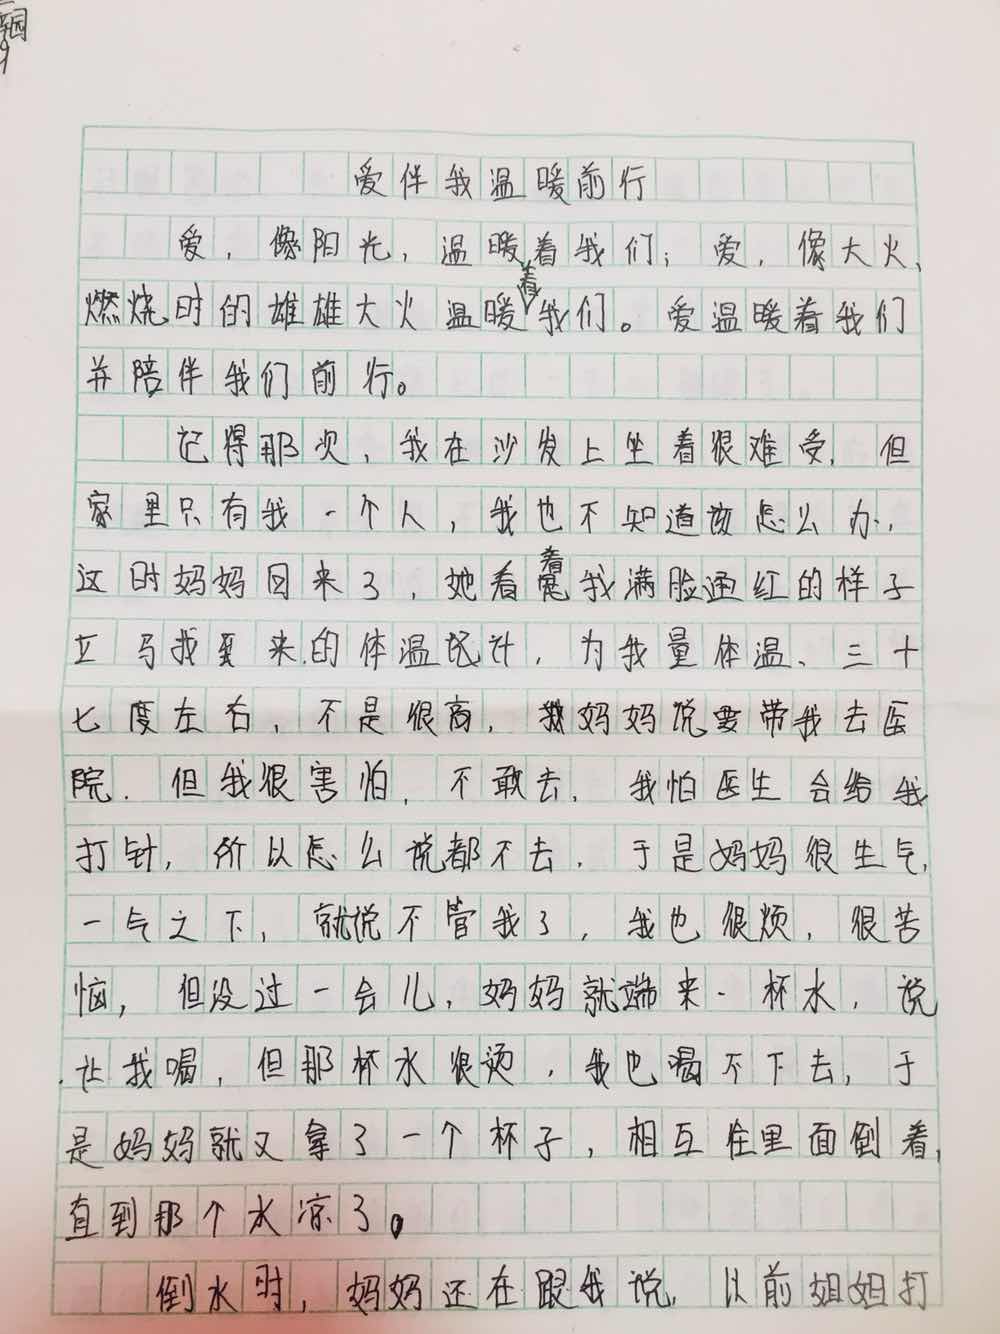 爱伴我温暖前行
爱，像阳光，温暖着我们；爱，像大火，
燃烧时的雄雄大火温暖着我们。爱温暖着我们
并陪伴我们前行。
记得那次，我在沙发上坐着很难受，但
家里只有我一个人，我也不知道该怎么办，
这时妈妈回来了，她看着我满脸通红的样子
立马找到来的体温计，为我量体温、三十
七度左右，不是很高，妈妈说要带我去医
院．但我很害怕，不敢去，我怕医生会给我
打针，所以怎么说都不去．于是妈妈很生气，
一气之下，就说不管我了，我也很烦，很苦
恼，但没过一会儿，妈妈就端来一杯水，说
让我喝，但那杯水很烫，我也喝不下去，于
是妈妈就又拿了一个杯子，相互往里面倒着，
直到那个水凉了。
倒水时，妈妈还在跟我说，以前姐姐打